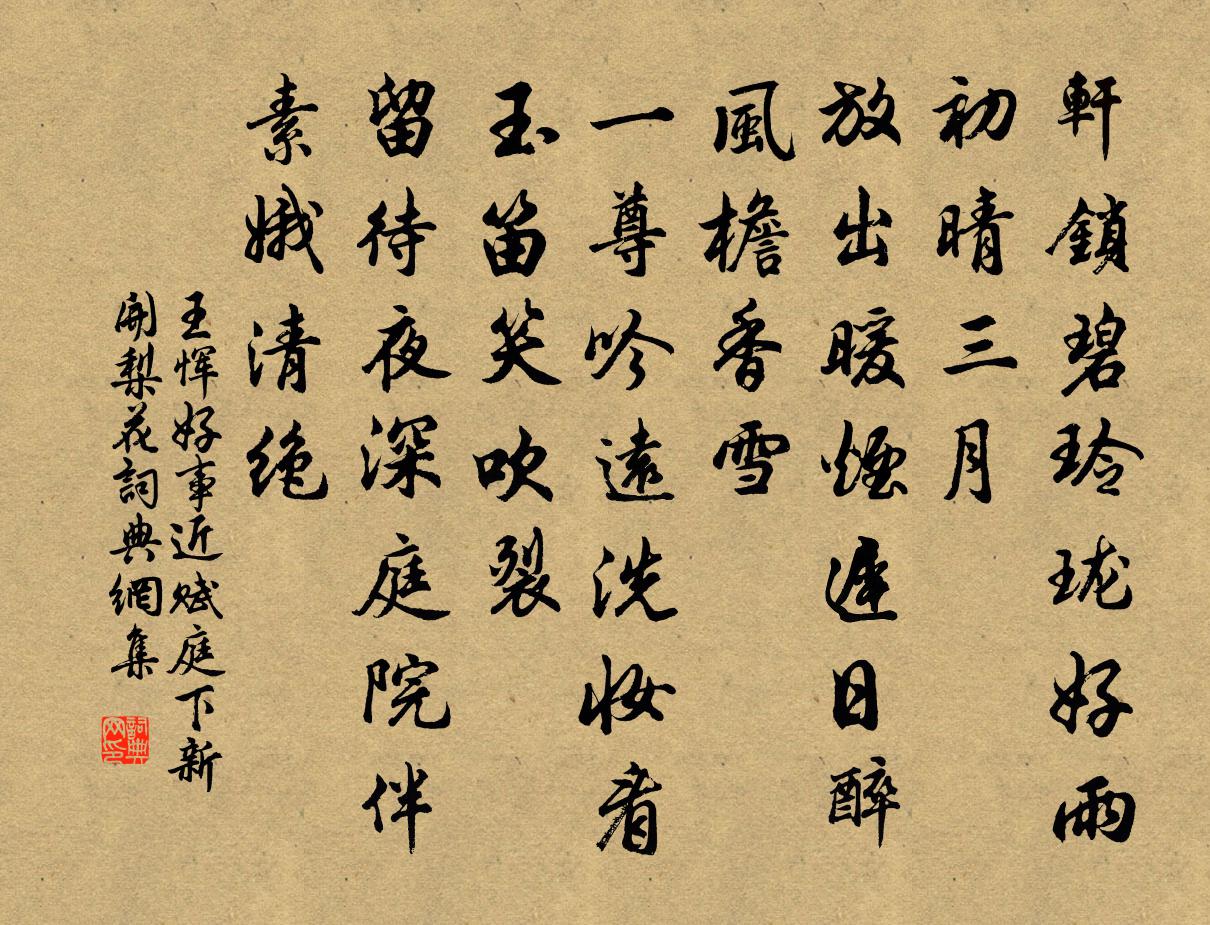 軒鎖碧玲瓏好雨
初晴三月
放出暖煙遲日醉
風檐香雪
一尊吟遠洗妝看
玉笛笑吹裂
留待夜深庭院伴
素娥清絶
王惲好事近賦庭下新
開梨花詞典網集
詞典网印